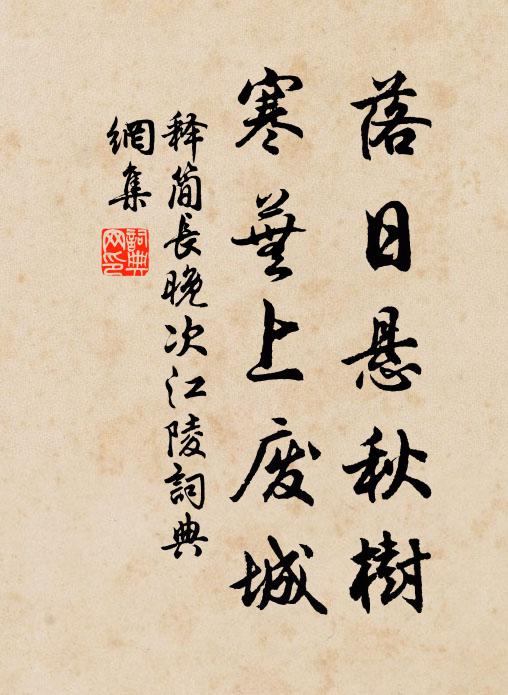 落日悬秋樹
寒蕪上废城
释简长晚次江陵詞典
網集
詞典
网印